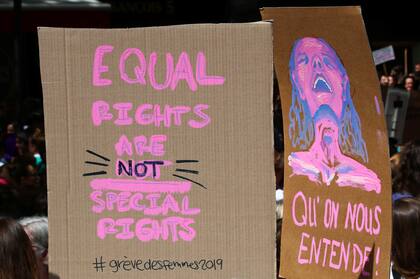 EQUAL
RIGHTS
ARE
NOT
SPECIAL
RIGHTS
#grèvedesfemmes2019
QU'ON NOUS
ENTENDE!